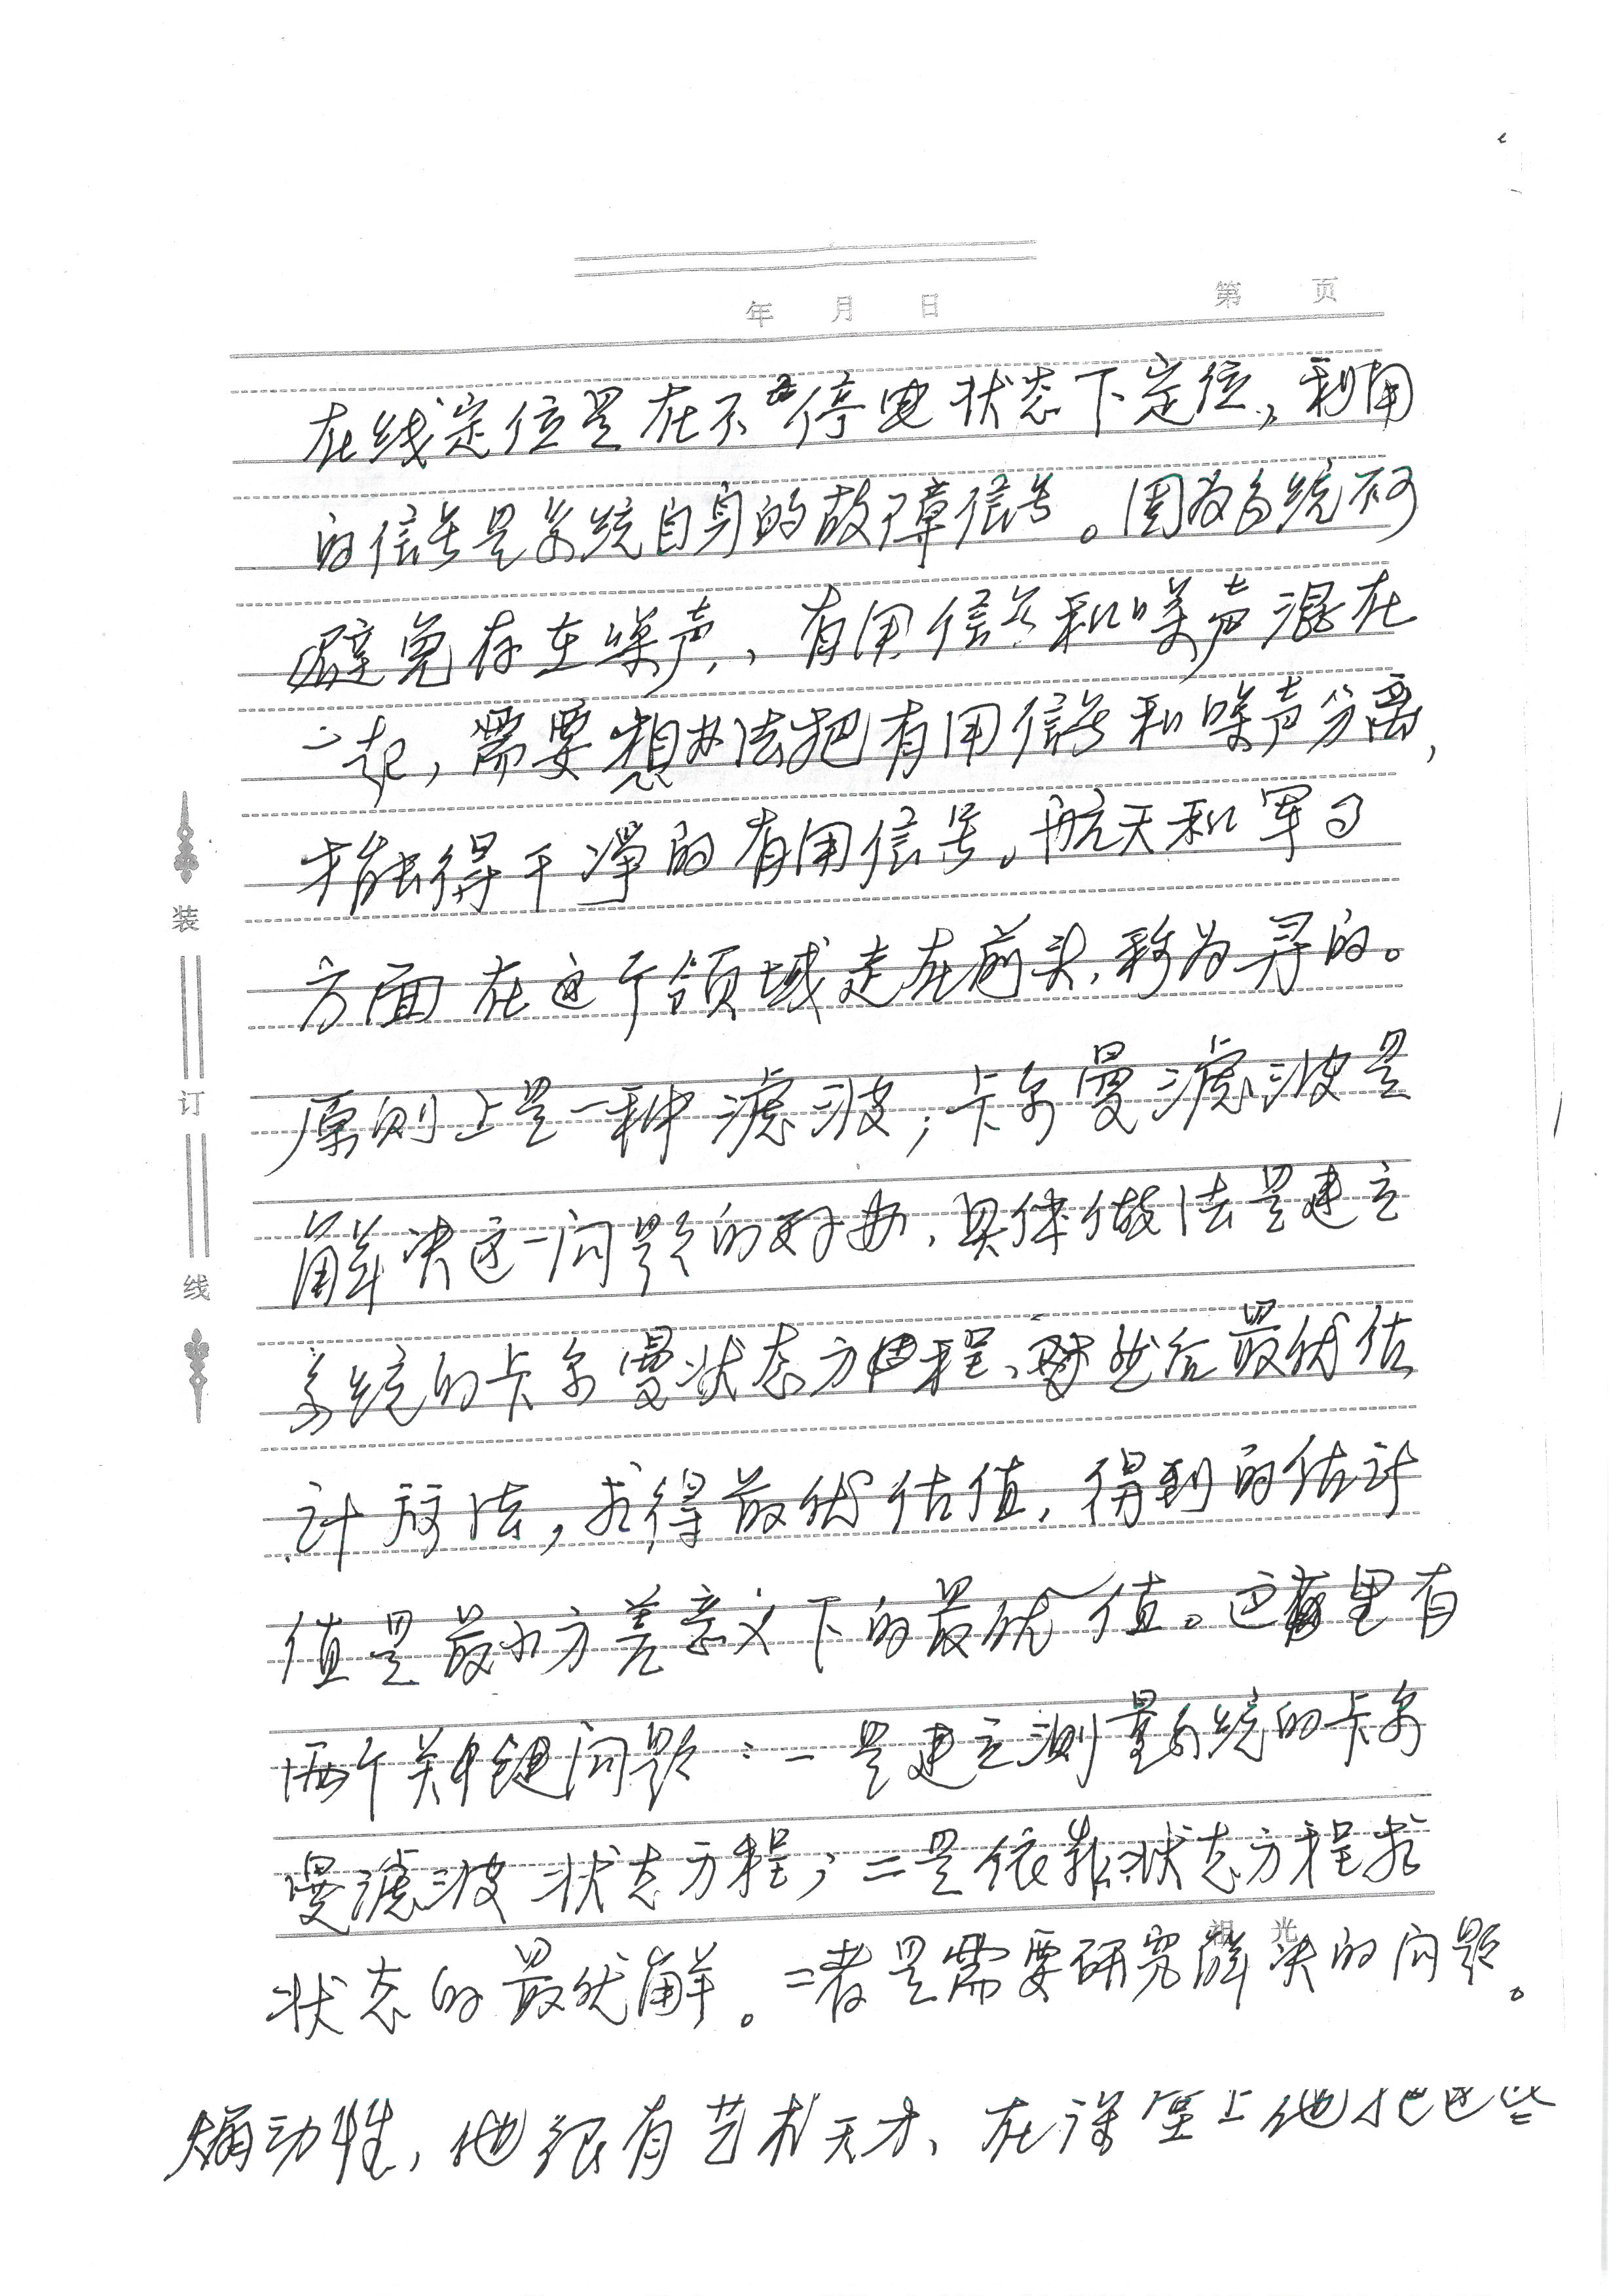 年 月 日 第 页
在线定位是在不停电状态下定位，利用
的信号是系统自身的故障信号。因为系统不可
避免存在噪声，有用信号和噪声混在
一起，需要想办法把有用信号和噪声分离，
才能获得干净的有用信号。航天和军事
方面在这个领域走在前头，称为寻的。
原则上是一种滤波，卡尔曼滤波是
解决这一问题的好办，具体做法是建立
系统的卡尔曼状态方程，然后最优估
计方法，求得最优估值，得到的估计
值是最小方差意义下的最优值。这里有
两个关键问题：一是建立测量系统的卡尔
曼滤波状态方程；二是依靠状态方程求
状态的最优解。二者是需要研究解决的问题。
煽动性，他很有艺术天才、在课堂上他把这些
装
订
线
祖光